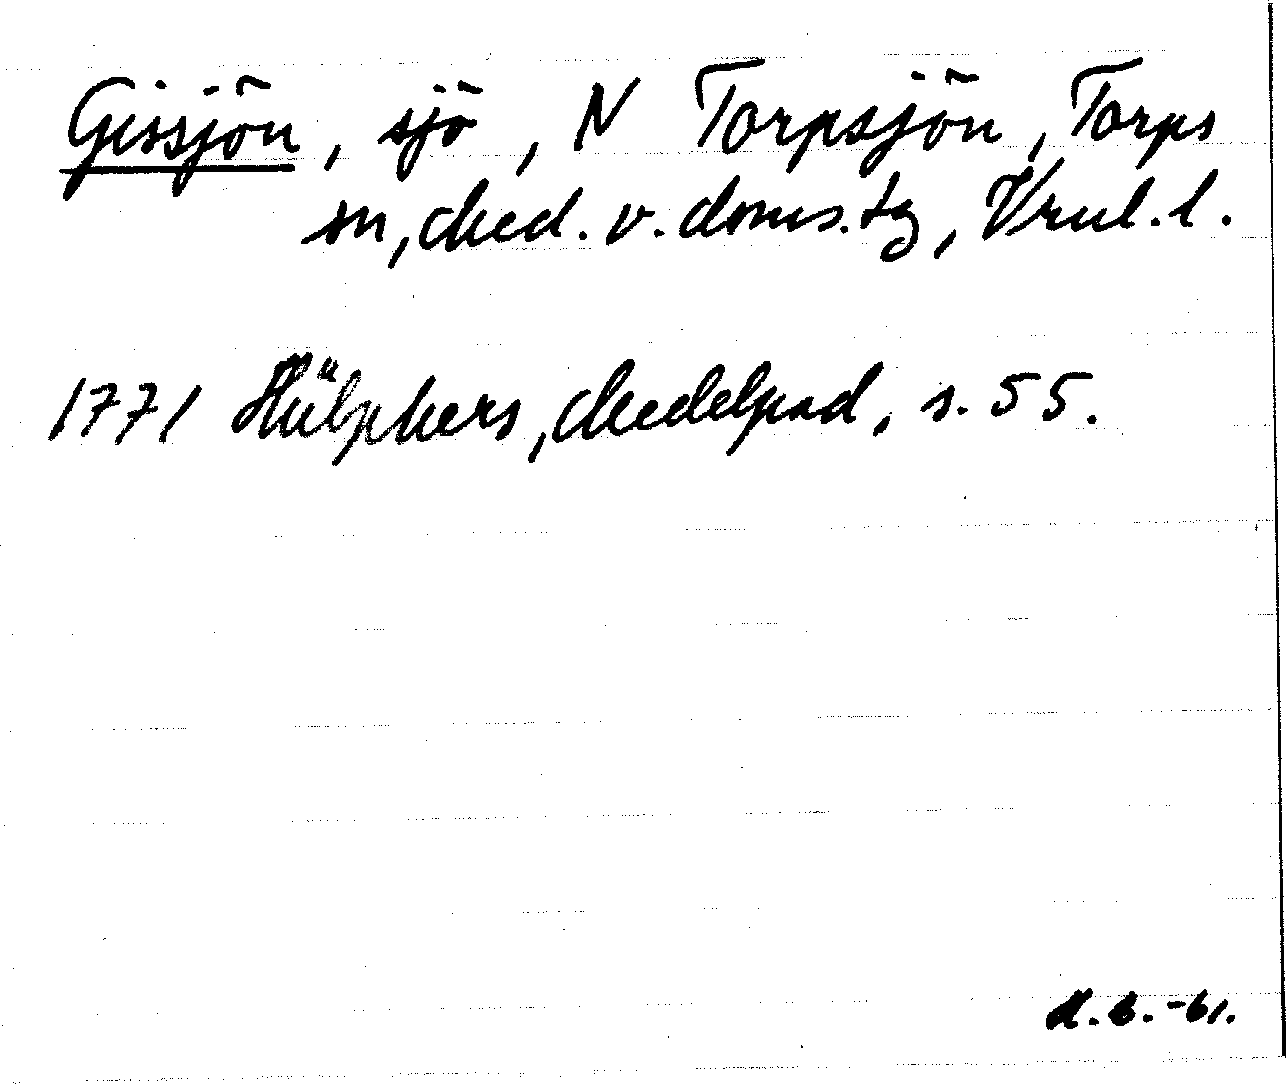 Gissjön, sjö, N Torpsjön, Torps
sn, Med. v. doms.tg, Vrnl. l.
1771 Hülphers, Medelpad, s. 55.
-61.